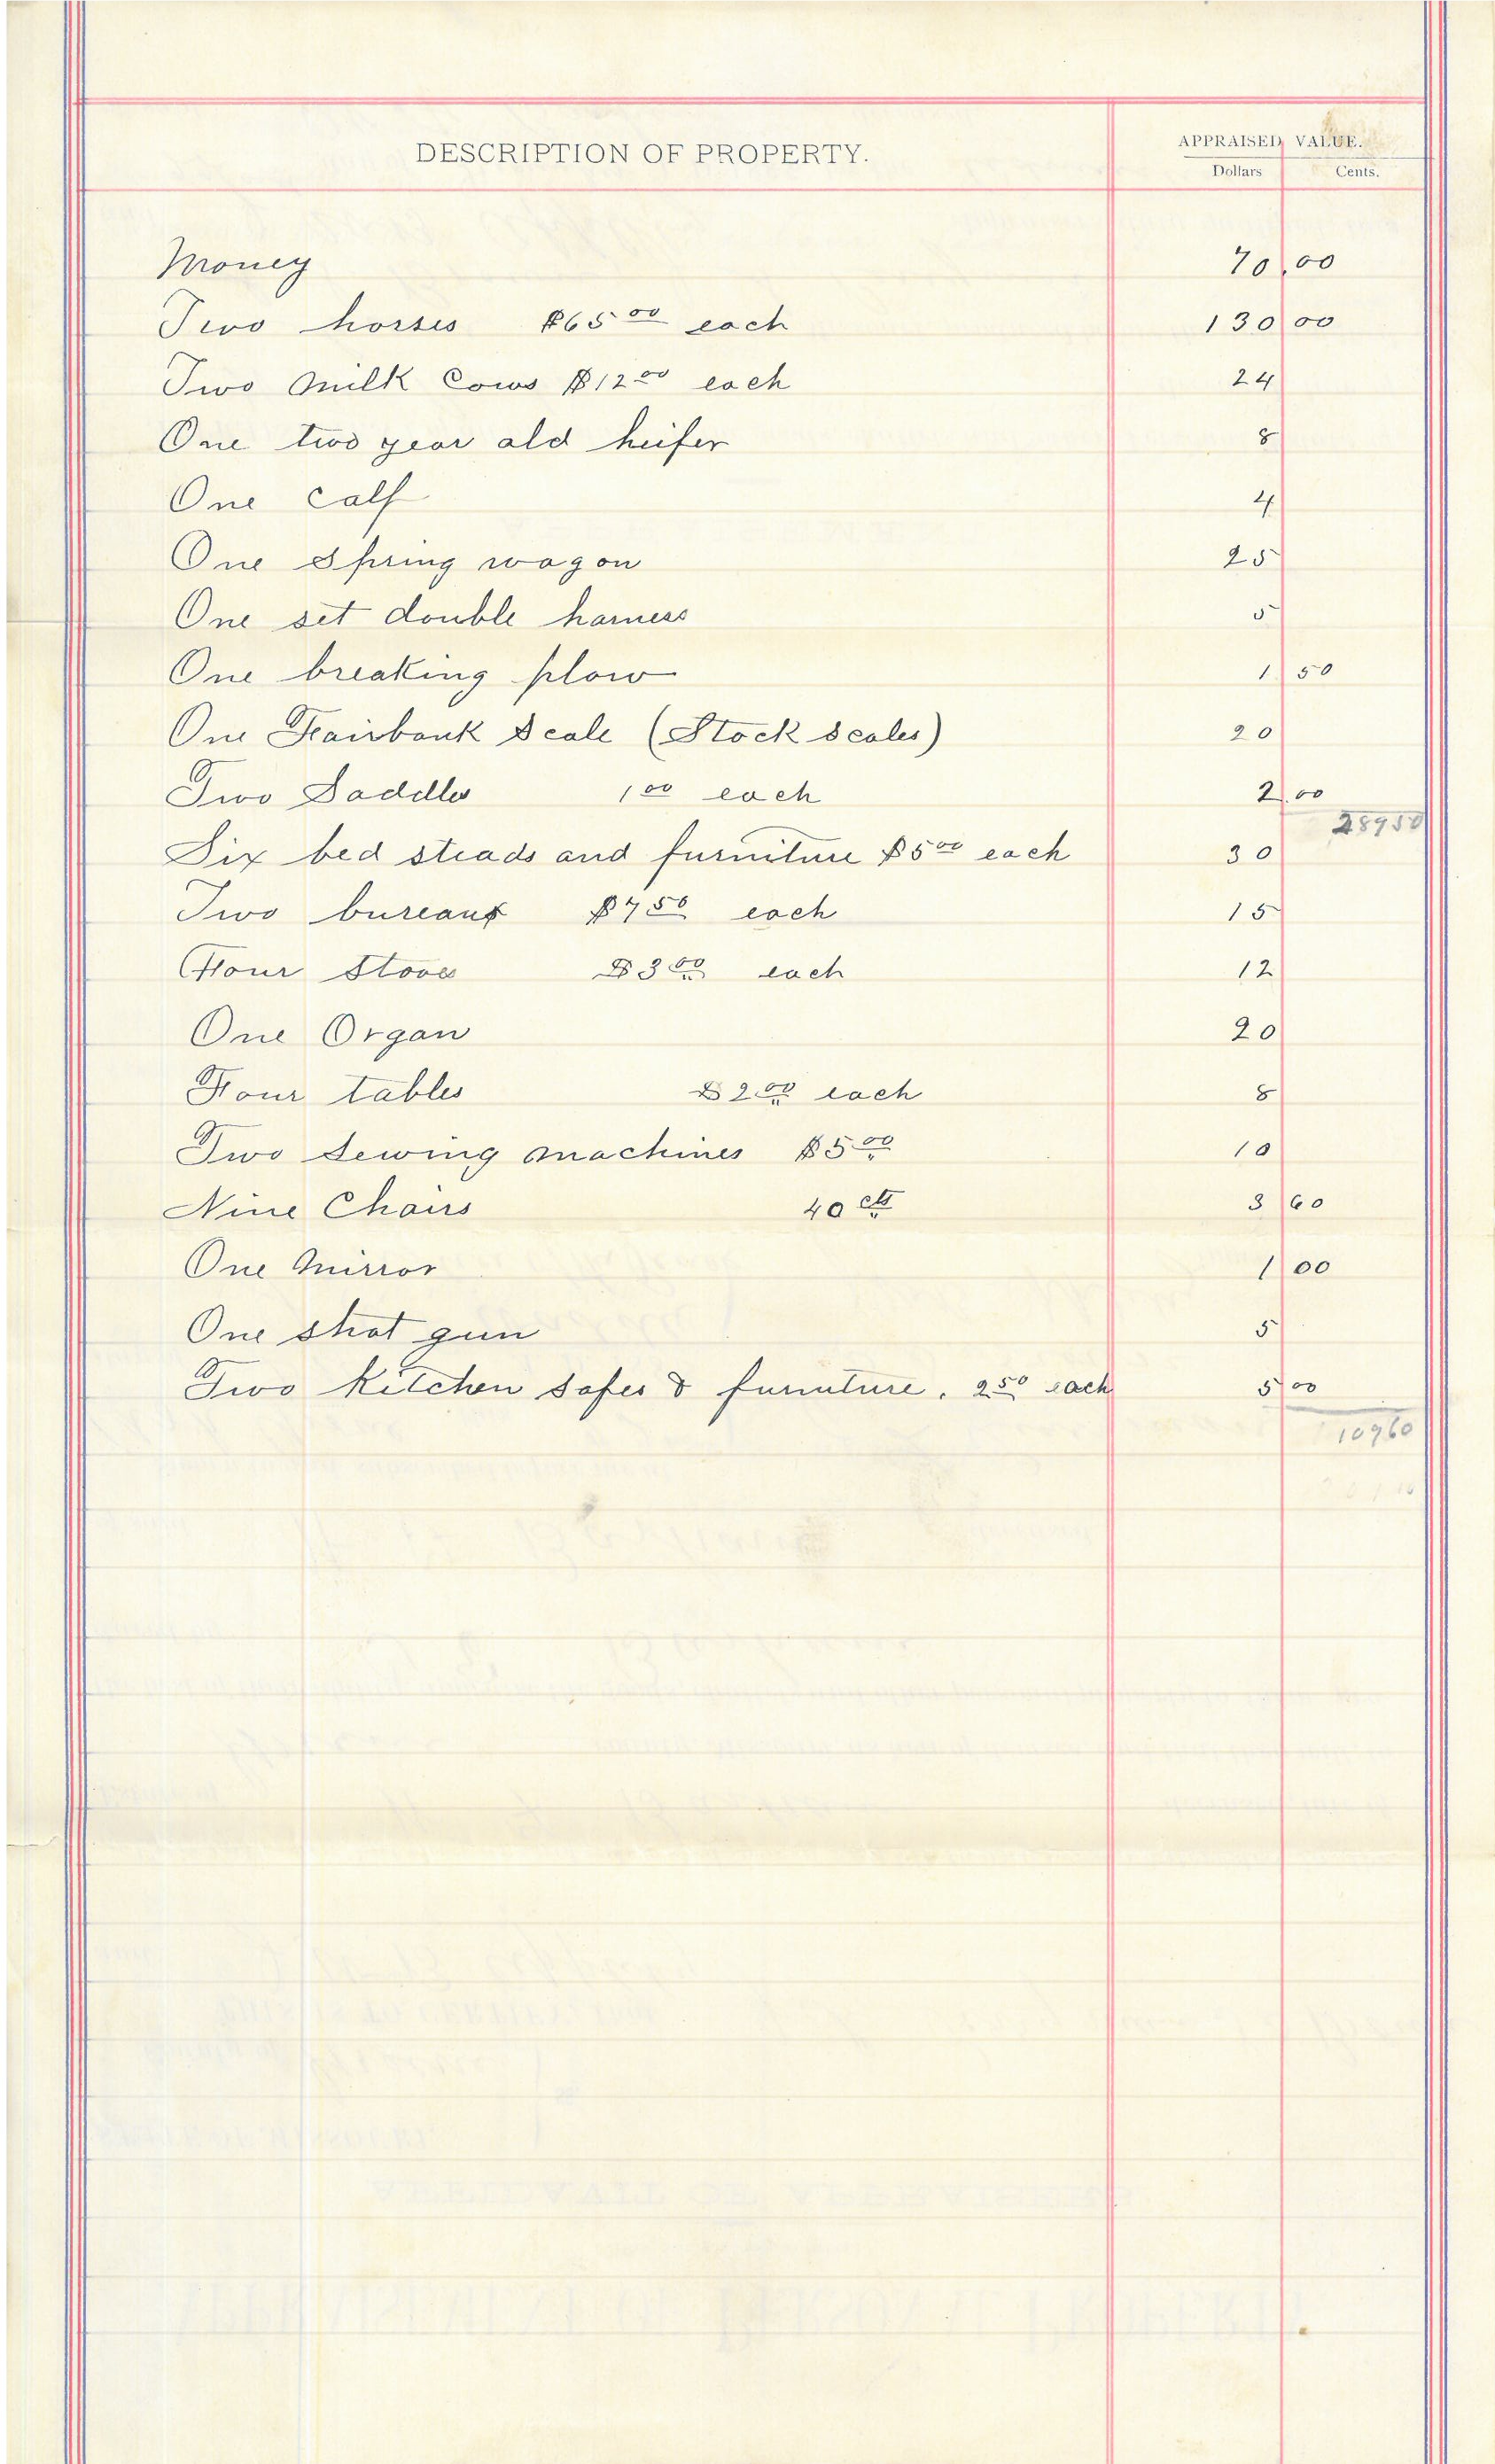 DESCRIPTION OF PROPERTY.
APPRAISED VALUE.
Dollars Cents.
Money 70.00
Two horses $65 00 each 130 00
Two Milk Cows $12 00 each 24
One two year old heifer 8
One Calf 4
One Spring wagon 25
One set double harness 5
One breaking plow 1 50
One Fairbank Scale (Stock scales) 20
Two Saddles 1 00 each 2.00
289 50
Six bed steads and furniture $5 00 each 30
Two bureaus $7 50 each 15
Four Stoves $3 00 each 12
One Organ 20
Four tables $2 00 each 8
Two Sewing Machines $5 00 10
Nine Chairs 40 cts 3 60
One Mirror 1 00
One shot gun 5
Two Kitchen Safes & furniture. 2 50 each 5 00
109 60